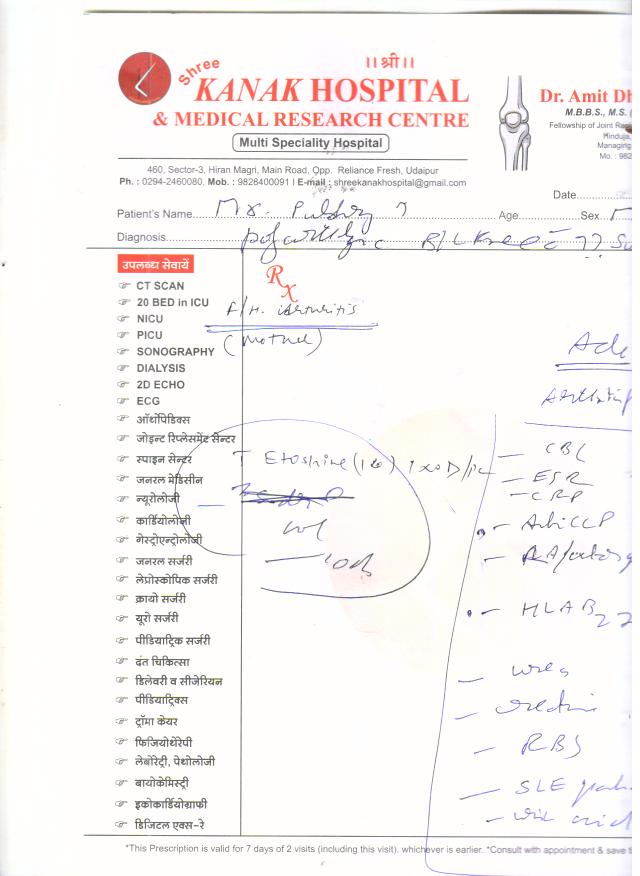 ।।श्री।।
Shree
KANAK HOSPITAL
& MEDICAL RESEARCH CENTRE
Multi Speciality Hospital
460, Sector-3, Hiran Magri, Main Road, Opp. Reliance Fresh, Udaipur
Ph. : 0294-2460080, Mob. : 9828400091 I E-mail : shreekanakhospital@gmail.com
Dr. Amit Dh
M.B.B.S., M.S. (
Fellowship of Joint
Hinduja,
Managing
Mo. : 982
Date
Patient's Name Mr. Age Sex
Diagnosis B/L Knee
उपलब्ध सेवायें
Rx
CT SCAN
20 BED in ICU
NICU
PICU
SONOGRAPHY
DIALYSIS
2D ECHO
ECG
ऑर्थोपेडिक्स
जोइन्ट रिप्लेसमेंट सेन्टर
स्पाइन सेन्टर
जनरल मेडिसीन
न्यूरोलोजी
कार्डियोलोजी
गेस्ट्रोएन्ट्रोलोजी
जनरल सर्जरी
लेप्रोस्कोपिक सर्जरी
क्रायो सर्जरी
यूरो सर्जरी
पीडियाट्रिक सर्जरी
दंत चिकित्सा
डिलेवरी व सीजेरियन
पीडियाट्रिक्स
ट्रॉमा केयर
फिजियोथेरेपी
लेबोरेट्री, पेथोलोजी
बायोकेमिस्ट्री
इकोकार्डियोग्राफी
डिजिटल एक्स-रे
F/H. Arthritis
(Mother)
T Etoshine
Adv
— CBC
— ESR
— CRP
— Anti CCP
— RA factor
— HLA B27
— urea
— creatini
— RBS
— SLE
— uric acid
*This Prescription is valid for 7 days of 2 visits (including this visit). whichever is earlier. *Consult with appointment & save